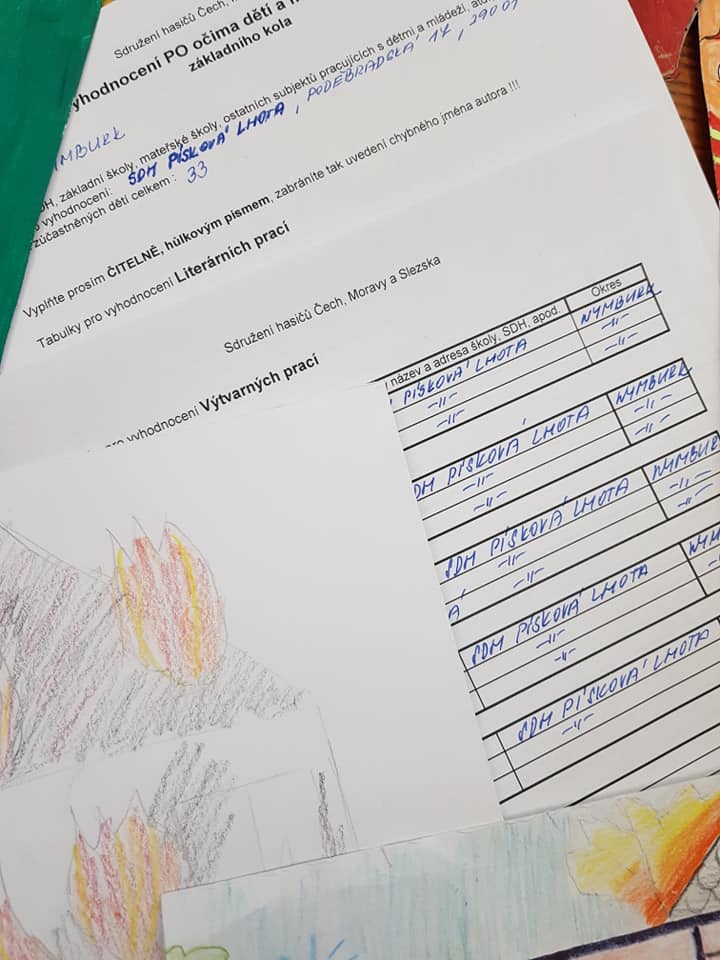 Sdružení hasičů Čech,
yhodnocení PO očima dětí a
základního kola
YMBURK
DH, základní školy, mateřské školy, ostatních subjektů pracujících s dětmi a mládeží,
vyhodnocení: SDH PÍSKOVÁ LHOTA, PODĚBRADSKÁ 17, 29001
zúčastněných dětí celkem: 33
Vyplňte prosím ČITELNĚ, hůlkovým písmem, zabráníte tak uvedení chybného jména autora !!!
Tabulky pro vyhodnocení Literárních prací
Sdružení hasičů Čech, Moravy a Slezska
pro vyhodnocení Výtvarných prací
název a adresa školy, SDH, apod. Okres
PÍSKOVÁ LHOTA NYMBURK
-11- -11-
-11- -11-
DH PÍSKOVÁ LHOTA NYMBURK
-11- -11-
-11- -11-
SDH PÍSKOVÁ LHOTA NYMBURK
-11- -11-
-11- -11-
SDH PÍSKOVÁ LHOTA NYM
-11-
-11-
SDH PÍSKOVÁ LHOTA
-11-